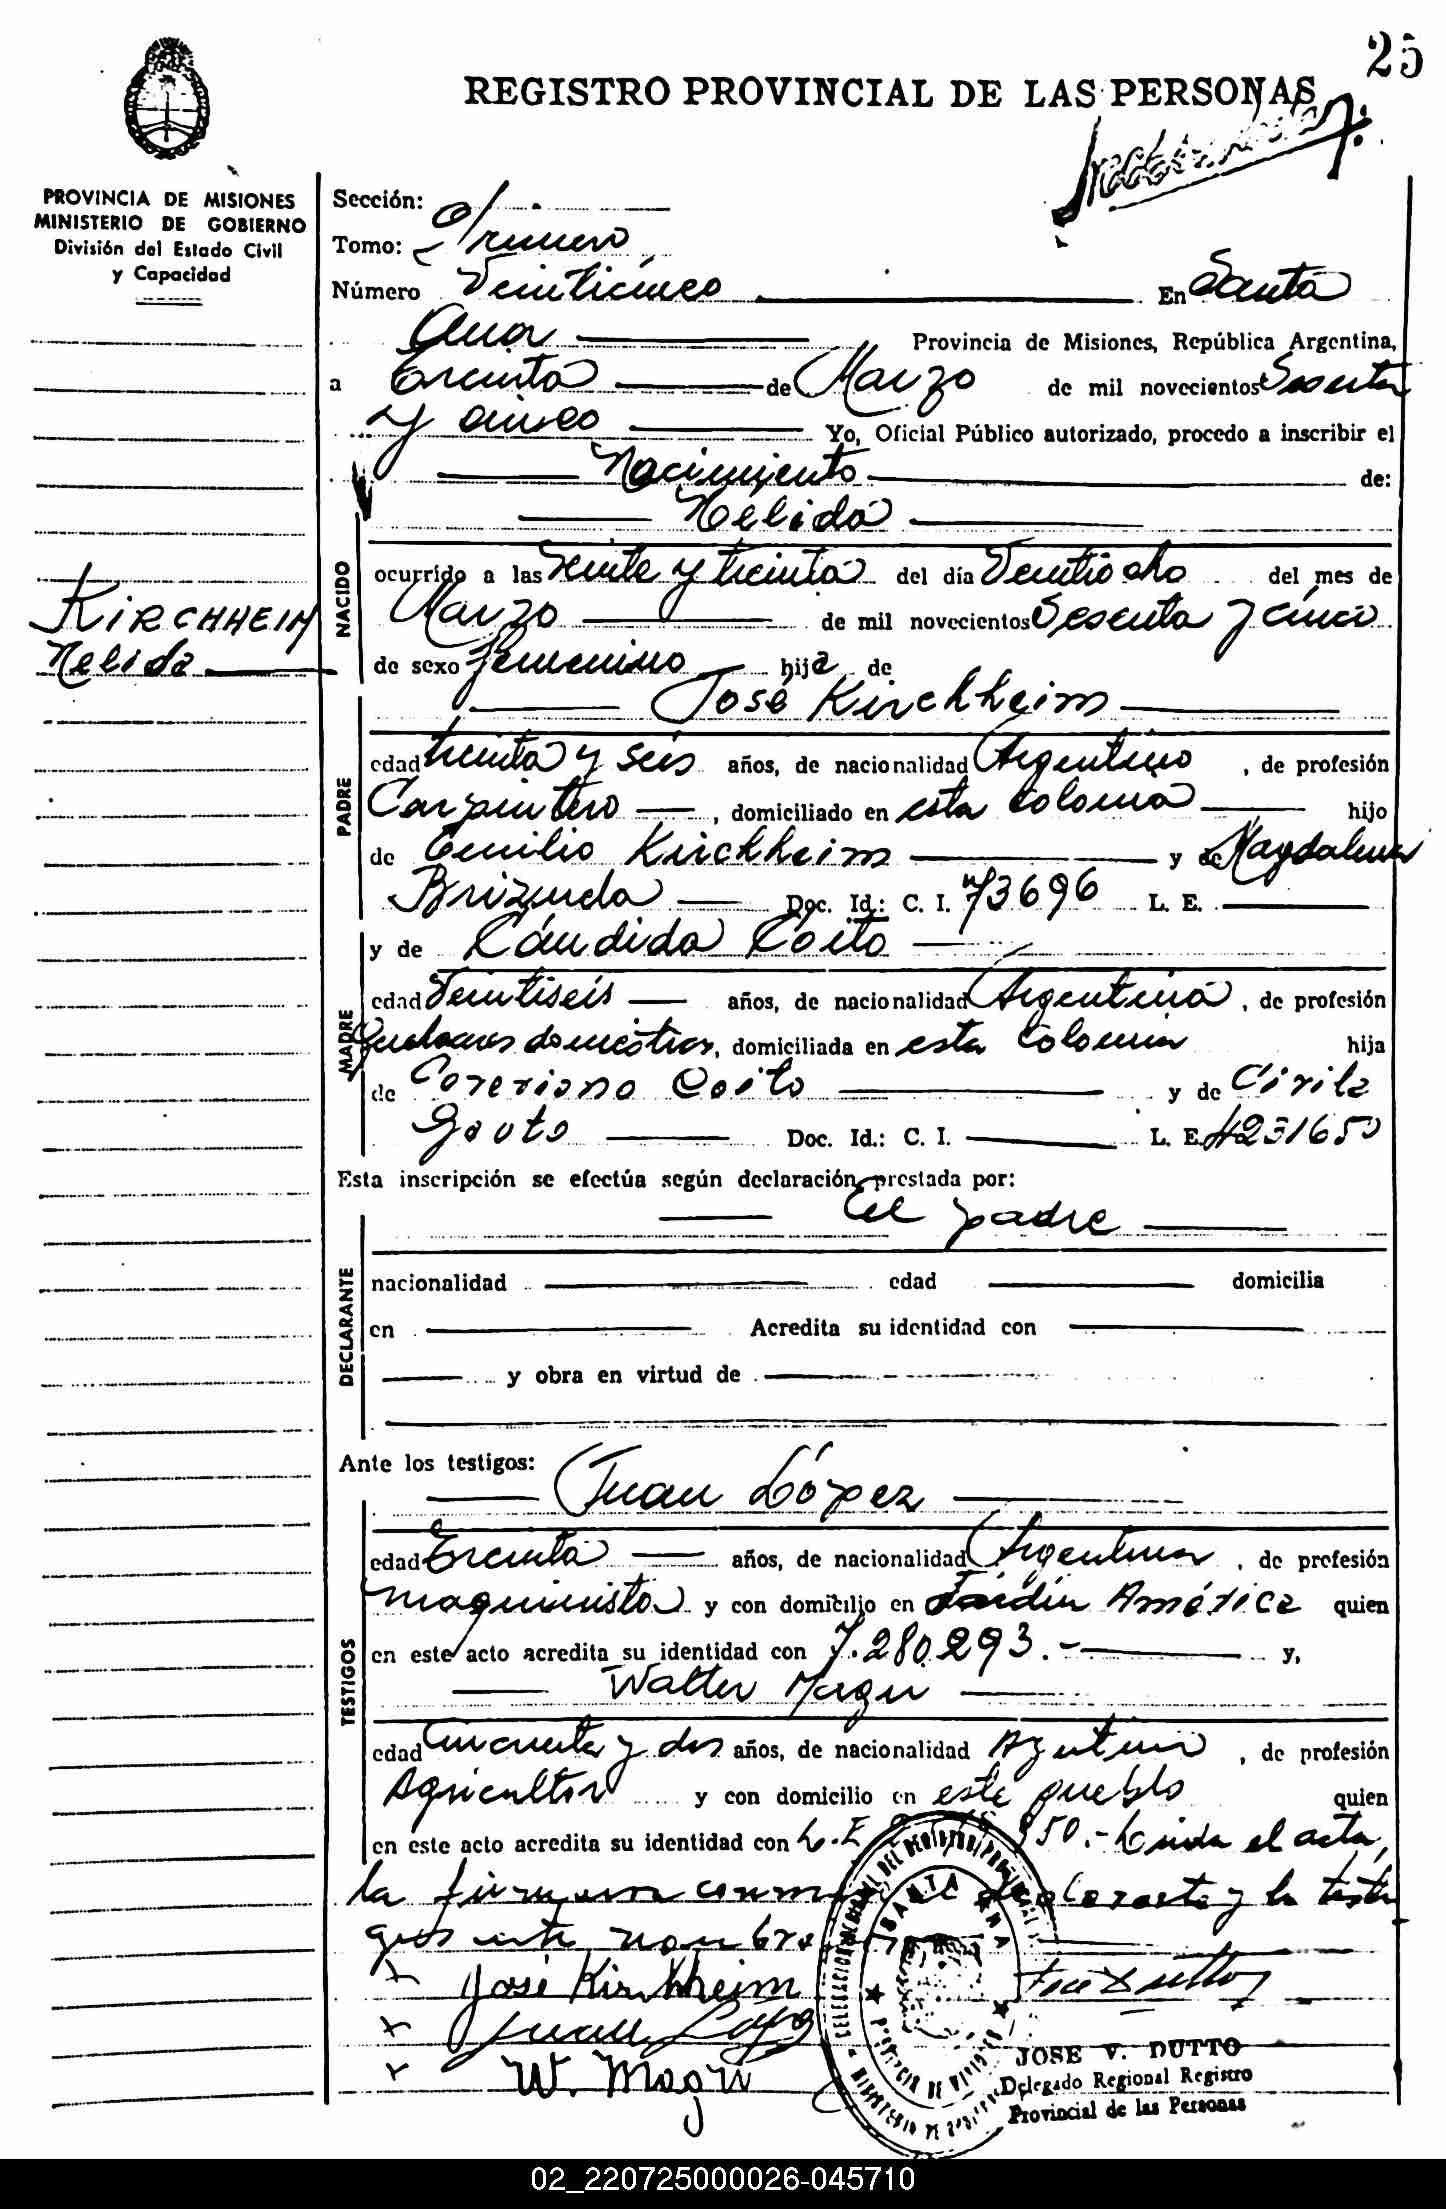 25
REGISTRO PROVINCIAL DE LAS PERSONAS
PROVINCIA DE MISIONES
MINISTERIO DE GOBIERNO
División del Estado Civil
y Capacidad
KIRCHHEIM
Nelida
Sección:
Tomo: Primero
Número Veinticinco En Santa
Ana Provincia de Misiones, República Argentina,
a Treinta de Marzo de mil novecientos Sesenta
y cinco Yo, Oficial Público autorizado, procedo a inscribir el
Nacimiento de:
Nelida
NACIDO
ocurrido a las veinte y treinta del día Veintiocho del mes de
Marzo de mil novecientos Sesenta y cinco
de sexo femenino hija de
José Kirchheim
PADRE
edad treinta y seis años, de nacionalidad Argentino, de profesión
Carpintero, domiciliado en esta Colonia hijo
de Emilio Kirchheim y de Magdalena
Brizuela Doc. Id.: C. I. 73696 L. E.
y de Cándida Coito
MADRE
edad Veintiseis años, de nacionalidad Argentina, de profesión
Quehaceres domésticos, domiciliada en esta Colonia hija
de Coito y de Cirila
Gouto Doc. Id.: C. I. L. E. 4231650
Esta inscripción se efectúa según declaración prestada por:
El padre
DECLARANTE
nacionalidad edad domicilia
en Acredita su identidad con
y obra en virtud de
Ante los testigos:
Juan López
TESTIGOS
edad Treinta años, de nacionalidad Argentina, de profesión
maquinista y con domicilio en Jardín América quien
en este acto acredita su identidad con 7.280.293.- y,
Walter Magri
edad Cincuenta y dos años, de nacionalidad Argentino, de profesión
Agricultor y con domicilio en este pueblo quien
en este acto acredita su identidad con L.E 950.- Leida el acta,
la firman conmigo el declarante y los testi
gos nombrados
José Kirchheim
Juan López
W. Magri
SANTA ANA
PROVINCIA DE MISIONES
JOSE V. DUTTO
Delegado Regional Registro
Provincial de las Personas
02_220725000026-045710